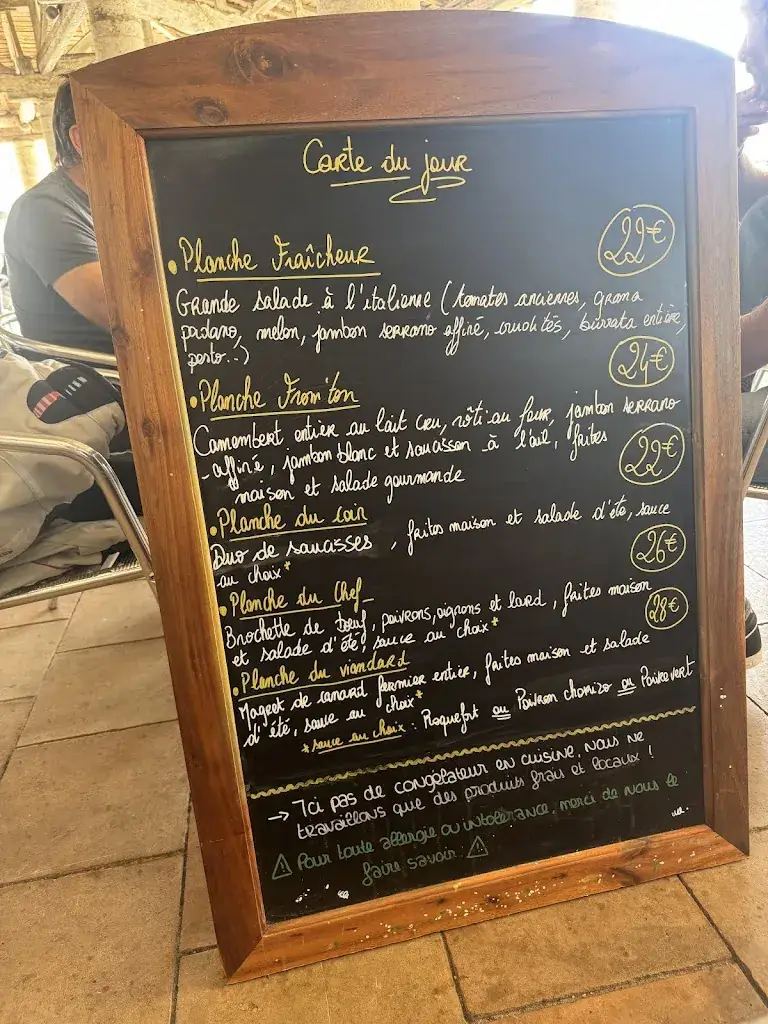 Carte du jour
• Planche Fraîcheur 22€
Grande salade à l'italienne (tomates anciennes, grana
padano, melon, jambon serrano affiné, crudités, burrata entière,
pesto..)
• Planche From'ton 24€
Camembert entier au lait cru, rôti au four, jambon serrano
affiné, jambon blanc et saucisson à l'ail, frites
maison et salade gourmande
• Planche du coin 22€
Duo de saucisses, frites maison et salade d'été, sauce
au choix*
• Planche du Chef 26€
Brochette de bœuf, poivrons, oignons et lard, frites maison
et salade d'été, sauce au choix*
• Planche du viandard 28€
Magret de canard fermier entier, frites maison et salade
d'été, sauce au choix*
*sauce au choix : Roquefort ou Poivron chorizo ou Poivre vert
→ Ici pas de congélateur en cuisine, nous ne
travaillons que des produits frais et locaux !
⚠ Pour toute allergie ou intolérance, merci de nous le
faire savoir. ⚠